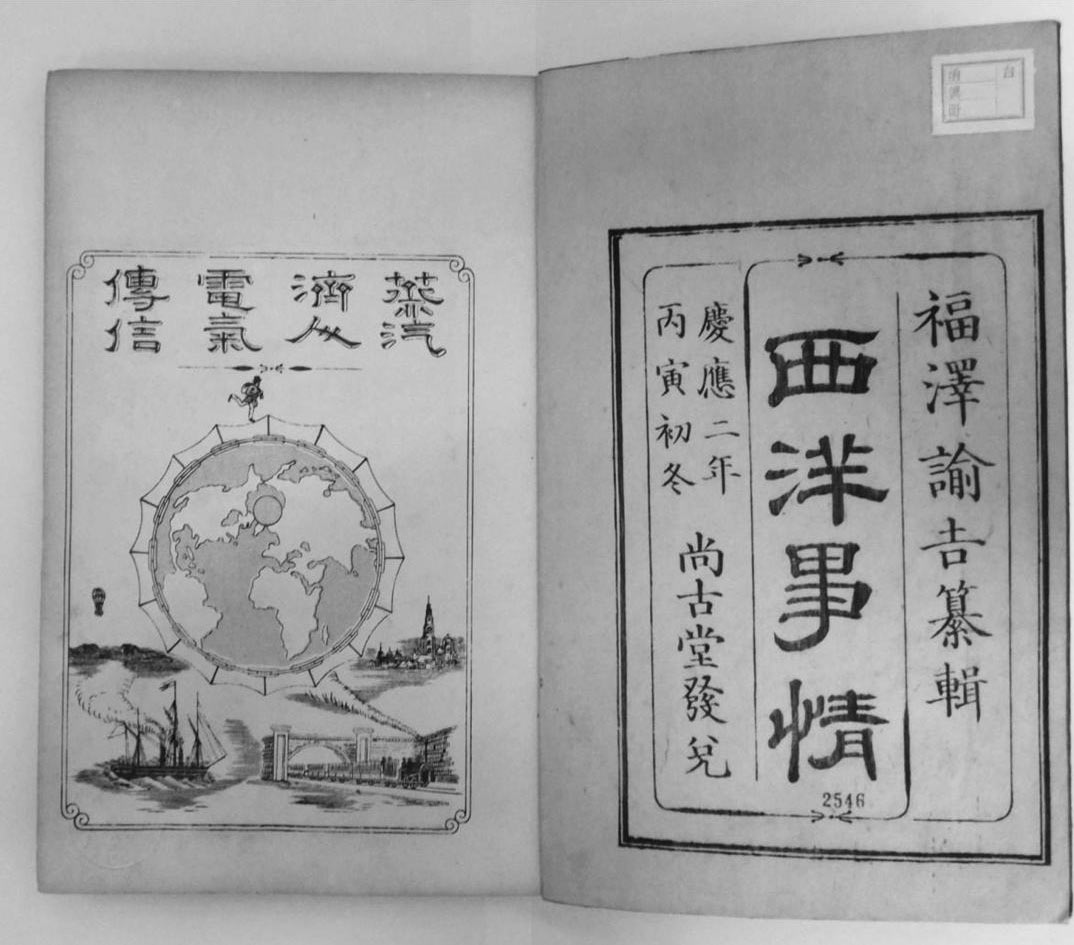 福澤諭吉纂輯
西洋事情
慶應二年
丙寅初冬
尚古堂發兌
2546
蒸汽
濟人
電氣
傳信